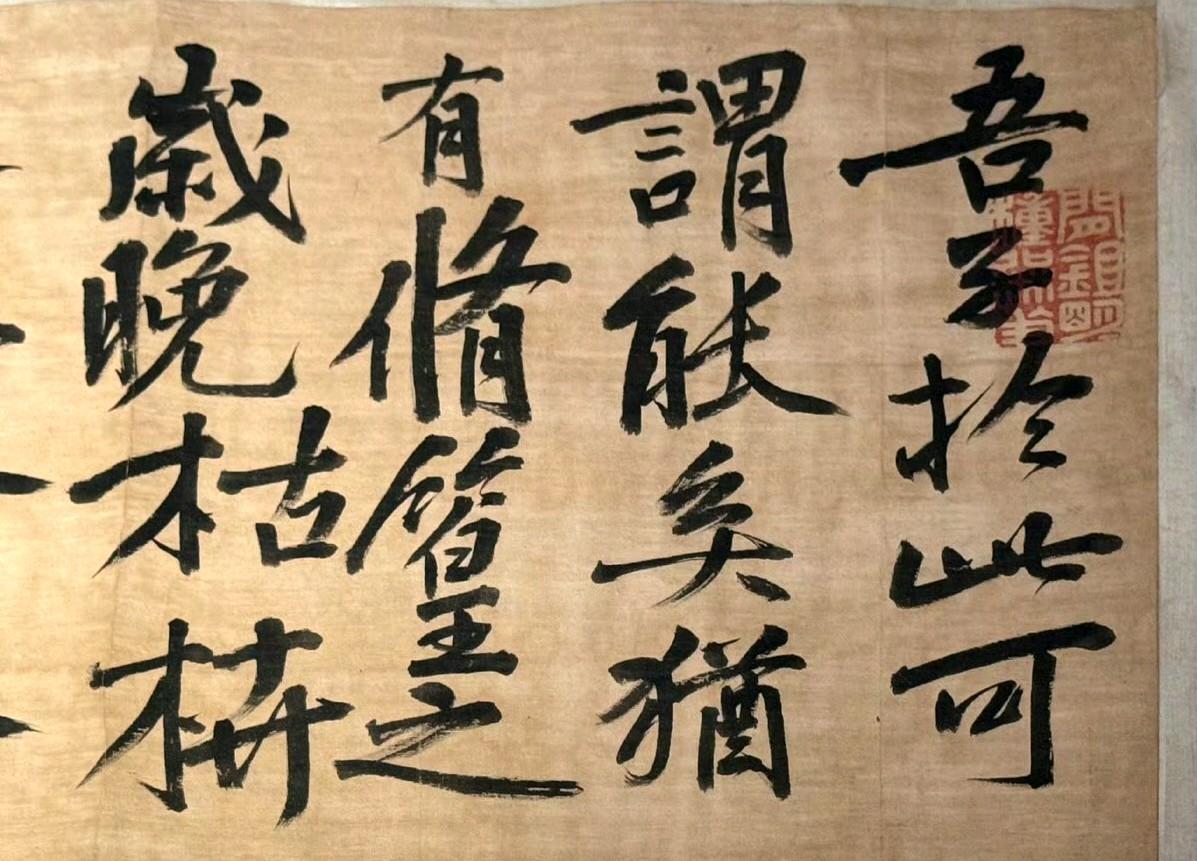 吾子於此可
謂能矣猶
有脩篁之
歲晚枯枿